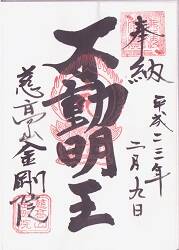 奉納
平成二三年
二月九日
不動明王
金剛院